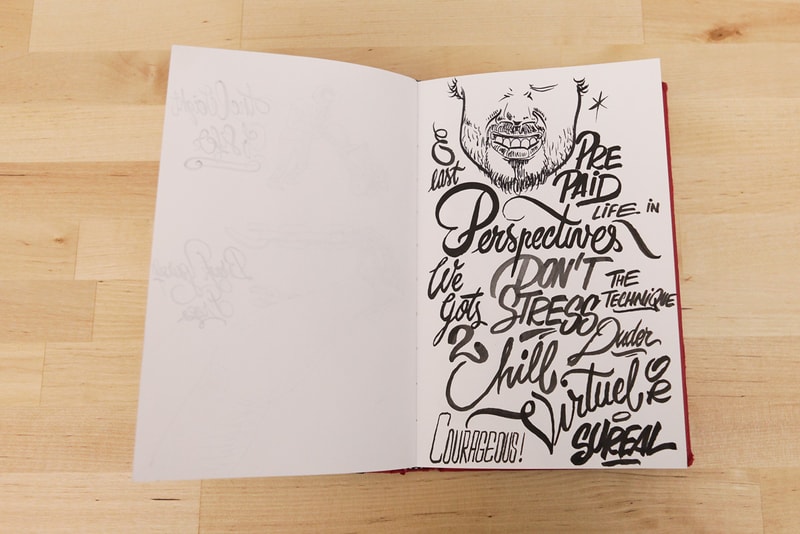 East
PRE
PAID
LIFE IN
Perspectives
We
gots
2
Chill
DON'T
STRESS
THE
TECHNIQUE
Duder
Virtuel
OR
SUREAL
COURAGEOUS!